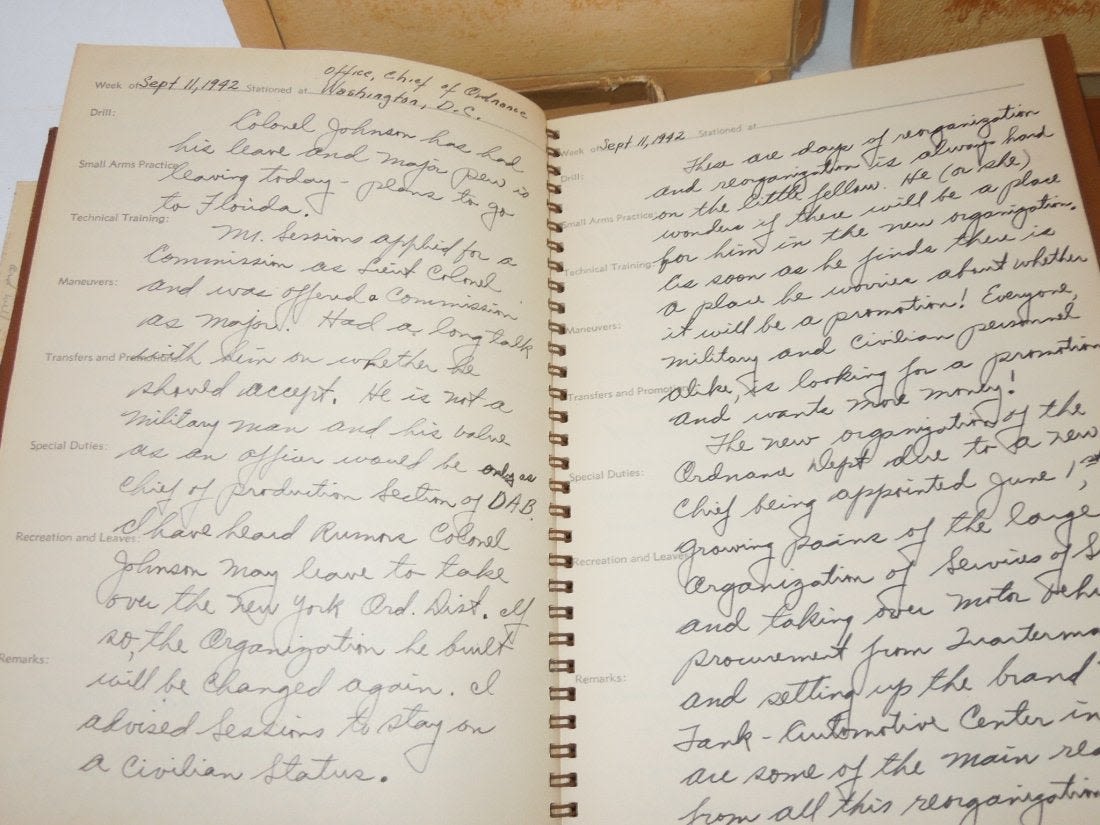 Week of Sept 11, 1942 Stationed at Office, Chief of Ordnance
Washington, D.C.
Drill:
Colonel Johnson has had
his leave and Major Pew is
Small Arms Practice
leaving today - plans to go
to Florida.
Technical Training:
Mr. Sessions applied for a
Commission as Lieut Colonel
Maneuvers:
and was offered a Commission
as Major. Had a long talk
Transfers and Promotions:
with him on whether he
should accept. He is not a
military man and his value
Special Duties:
as an officer would be only as
Chief of Production Section of DAB.
Recreation and Leaves:
I have heard Rumors Colonel
Johnson may leave to take
over the New York Ord. Dist. If
so, the Organization he built
Remarks:
will be changed again. I
advised Sessions to stay on
a Civilian Status.
Week of Sept 11, 1942 Stationed at
Drill:
These are days of reorganization
and reorganization is always hard
Small Arms Practice:
on the little fellow. He (or she)
wonders if there will be a place
Technical Training:
for him in the new organization.
As soon as he finds there is
a place he worries about whether
Maneuvers:
it will be a promotion! Everyone,
military and Civilian personnel
Transfers and Promotions
alike, is looking for a promotion
and wants more money!
The new organization of the
Special Duties:
Ordnance Dept due to a new
Chief being appointed June 1st,
growing pains of the large
Recreation and Leaves
Organization of Services of S
and taking over Motor Vehi
procurement from Quarterma
Remarks:
and setting up the brand
Tank-Automotive Center in
are some of the main rea
from all this reorganization